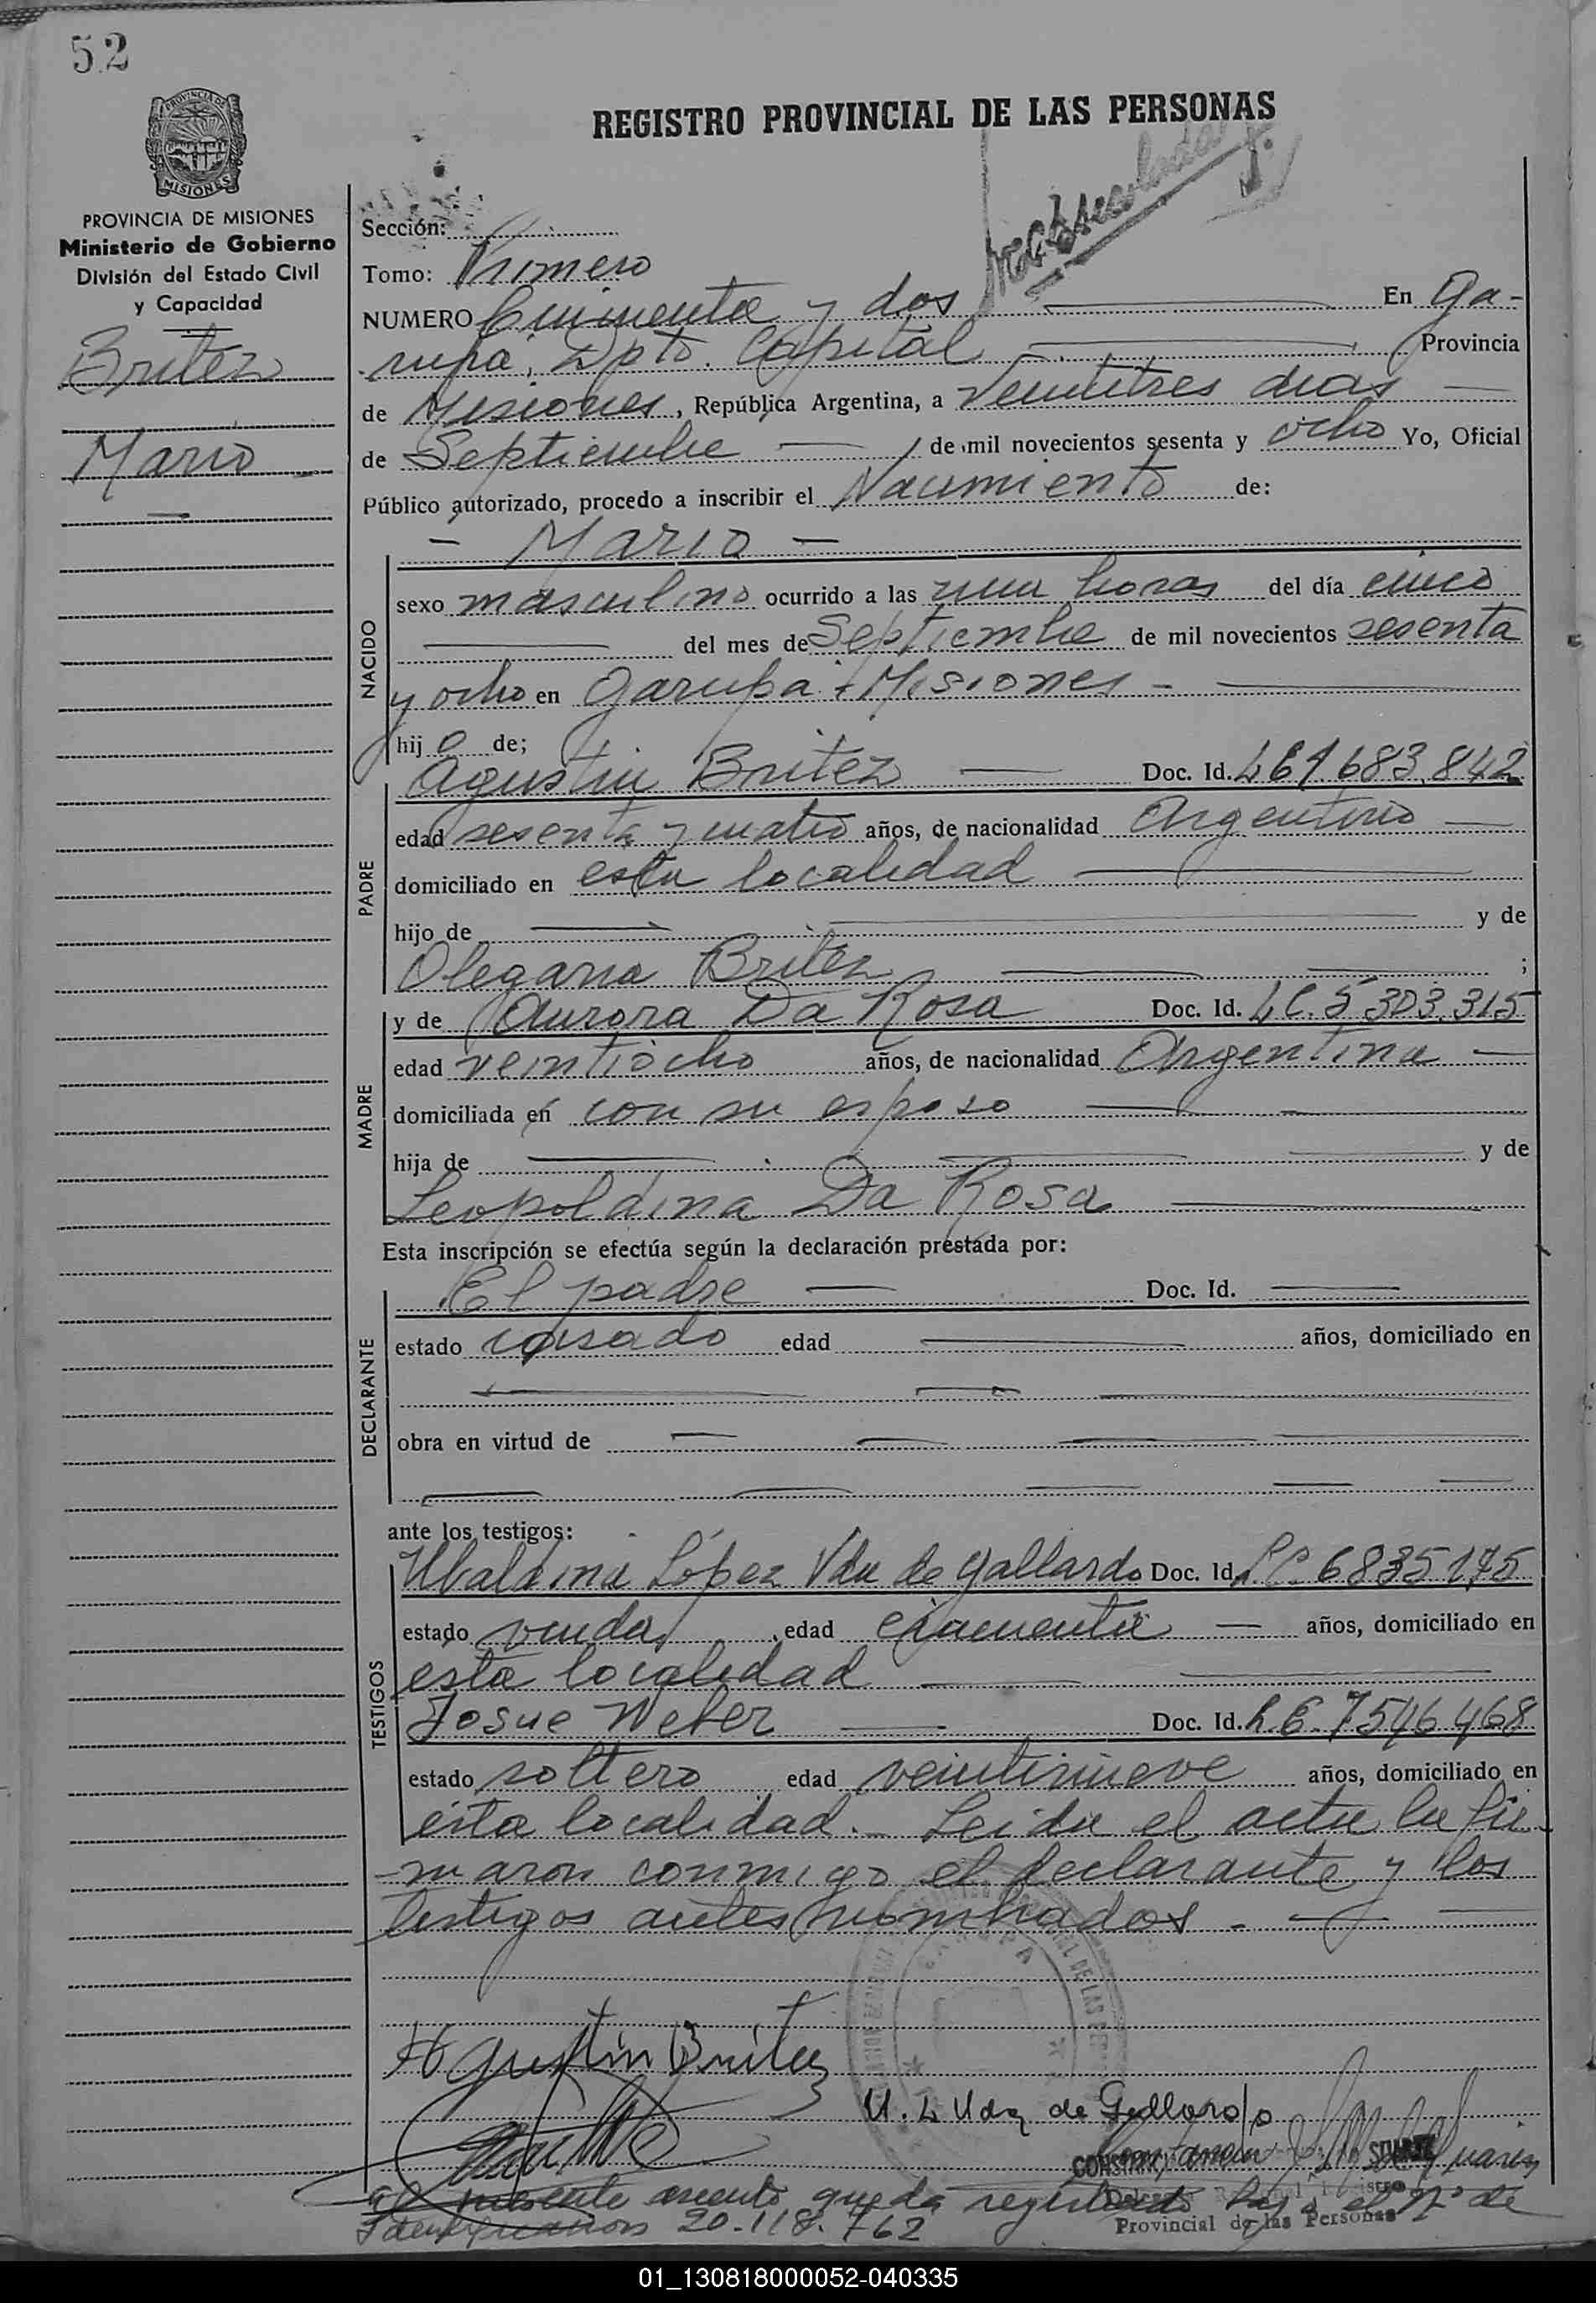 52
REGISTRO PROVINCIAL DE LAS PERSONAS
PROVINCIA DE
MISIONES
PROVINCIA DE MISIONES
Ministerio de Gobierno
División del Estado Civil
y Capacidad
Britez
Mario
Sección:
Tomo: Primero
NUMERO Cincuenta y dos En Ga-
rupá, Dpto. Capital Provincia
de Misiones, República Argentina, a Veintitres dias
de Septiembre de mil novecientos sesenta y ocho Yo, Oficial
Público autorizado, procedo a inscribir el Nacimiento de:
- Mario -
NACIDO
sexo masculino ocurrido a las una horas del día cinco
del mes de Septiembre de mil novecientos sesenta
y ocho en Garupa - Misiones -
hij o de;
PADRE
Agustin Britez Doc. Id. 1.683.842
edad sesenta y cuatro años, de nacionalidad Argentino
domiciliado en esta localidad
hijo de y de
Olegaria Britez ;
MADRE
y de Aurora Da Rosa Doc. Id. L.C. 5.303.315
edad veintiocho años, de nacionalidad Argentina
domiciliada en con su esposo
hija de y de
Leopoldina Da Rosa
Esta inscripción se efectúa según la declaración prestada por:
DECLARANTE
El padre Doc. Id.
estado casado edad años, domiciliado en
obra en virtud de
ante los testigos:
TESTIGOS
Ubaldina López Vda de Gallardo Doc. Id. L.C. 6835175
estado viuda edad cincuenta años, domiciliado en
esta localidad
Josue Weber Doc. Id. L.E. 7546468
estado soltero edad veintinueve años, domiciliado en
ésta localidad.- Leida el acta la fir-
maron conmigo el declarante y los
testigos antes nombrados.-
GARUPA
Agustin Britez
U. L Vda de Gallardo
SUAREZ
el presente asiento queda registrado bajo el Nº de
Identificacion 20.118.762
Provincial de las Personas
01_130818000052-040335